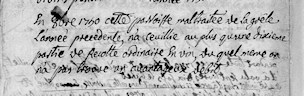 En 1770 cette parroisse maltraitée de la grele
l'année precedente, n'a ceuillie au plus qu'une dixieme
partie de recolte ordinaire en vin, du quel meme on
n'a pas trouvé un avantageux